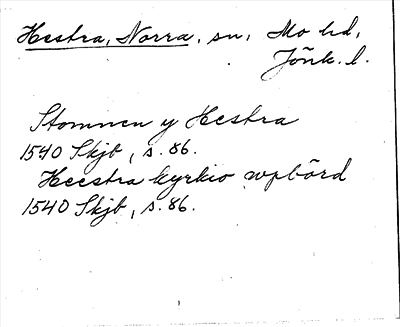 Hestra, Norra, sn, Mo hd,
Jönk. l.
Stomnen y Hestra
1540 Skjb, s. 86.
Heestra kyrkio wpbörd
1540 Skjb, s. 86.